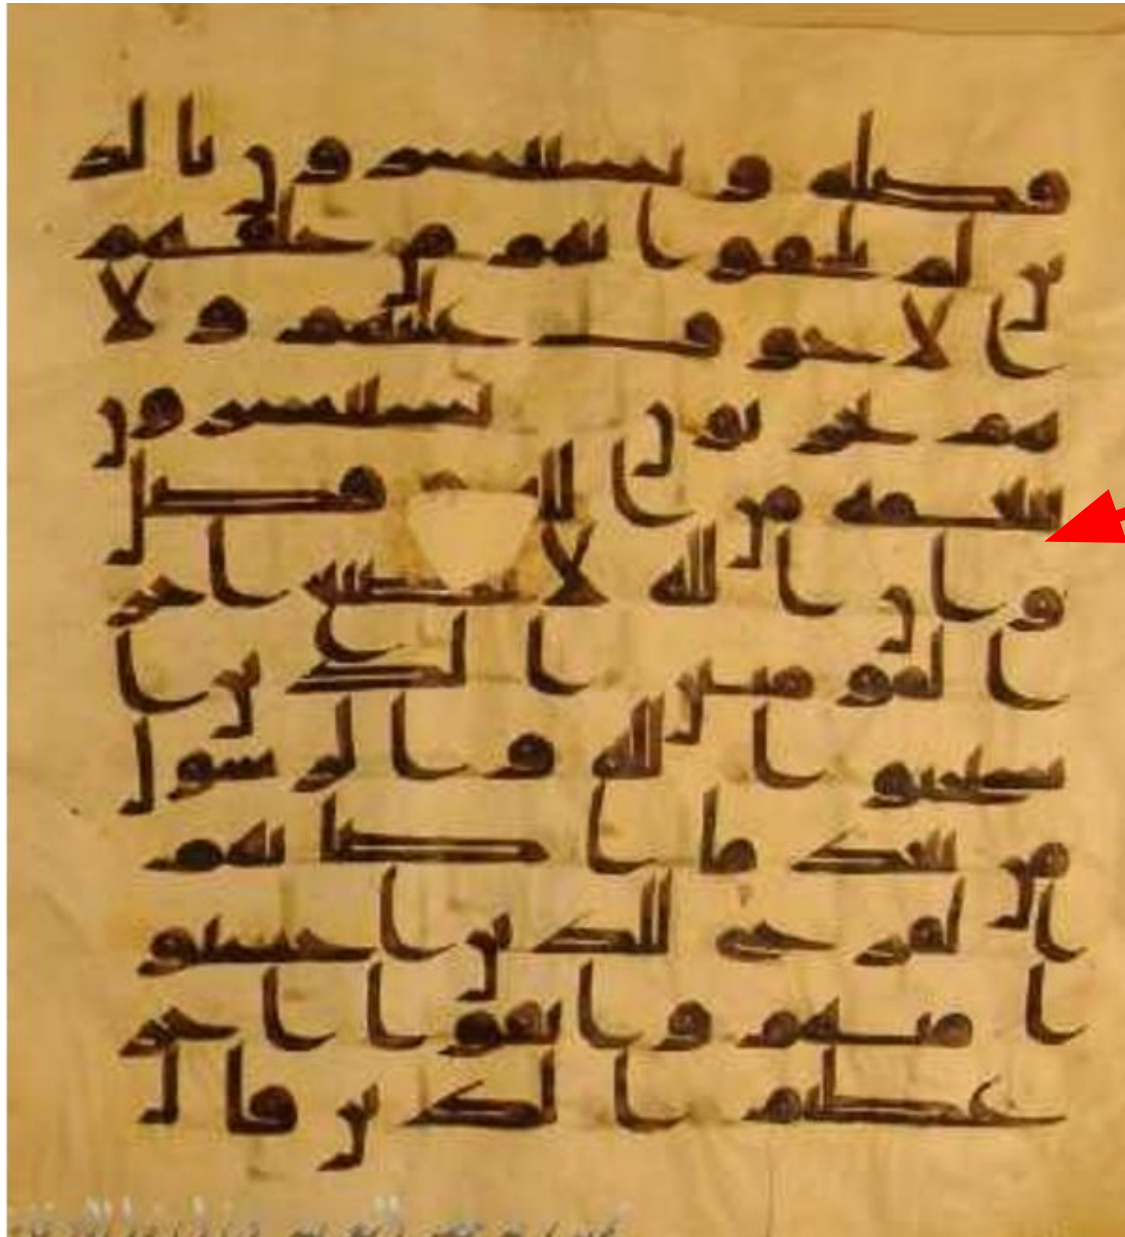 فضله و يستبشرون بالذ
ين لم يلحقوا بهم من خلفهم
ا لا خوف عليهم و لا
هم يحزنون يستبشرون
بنعمه من الله و فضل
و ان الله لا يضيع اجر
المومنين الذين ا
ستجبوا لله و الرسول
من بعد ما اصابهم
القرح للذين احسنو
ا منهم و اتقوا اجر
عظيم الذين قال